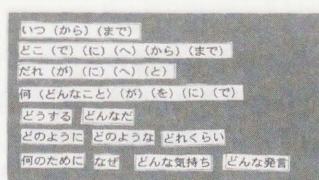 いつ（から）（まで）
どこ（で）（に）（へ）（から）（まで）
だれ（が）（に）（へ）（と）
何（どんなこと）（が）（を）（に）（で）
どうする　どんなだ
どのように　どのような　どれくらい
何のために　なぜ　どんな気持ち　どんな発言